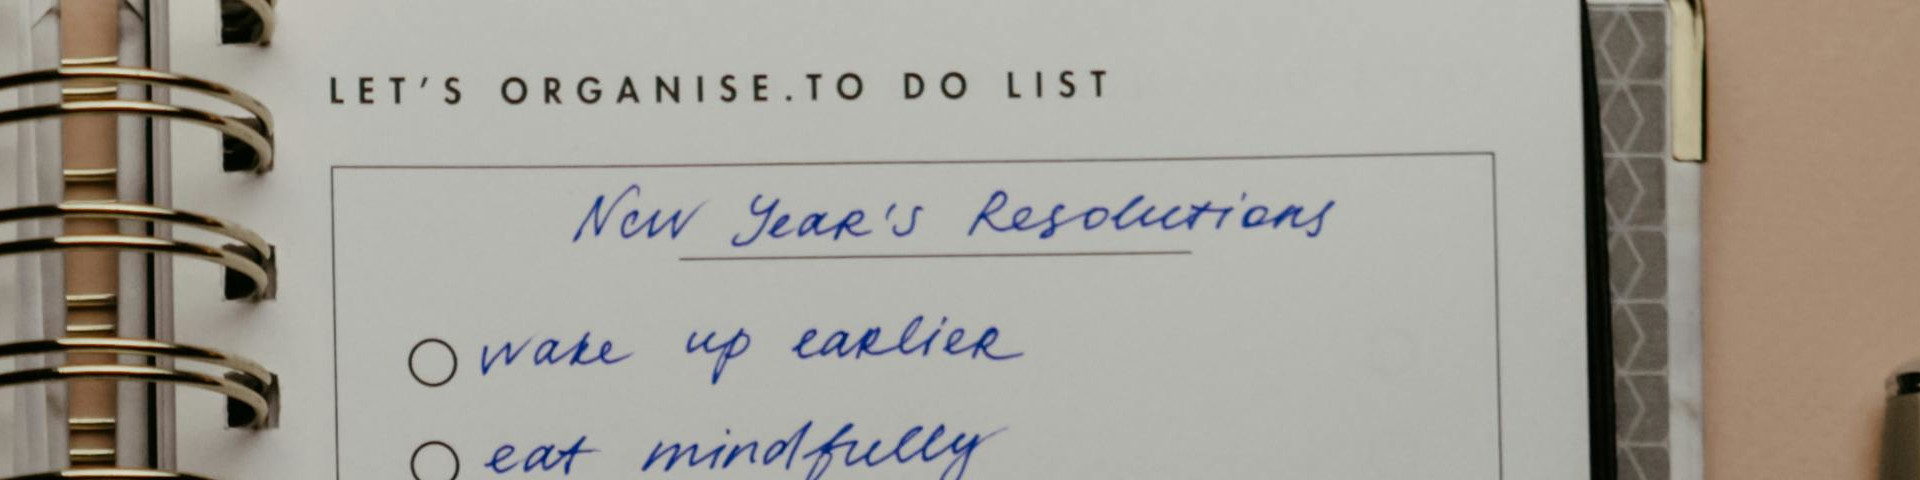 LET'S ORGANISE.TO DO LIST
New Year's Resolutions
wake up earlier
eat mindfully